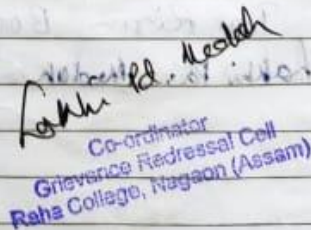 Lakhi Pd. Medak
Co-ordinator
Grievance Redressal Cell
Raha College, Nagaon (Assam)